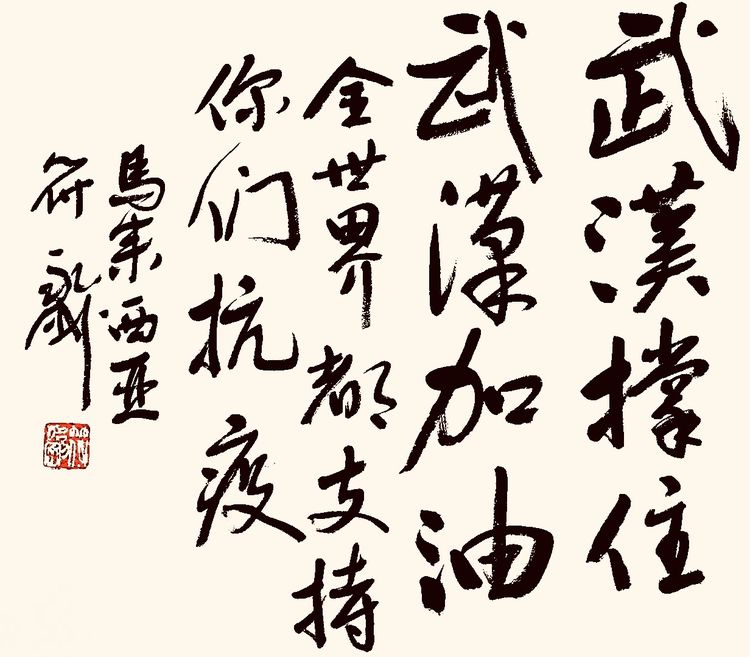 武漢撑住
武漢加油
全世界都支持
你们抗疫
馬来西亚
符永刚